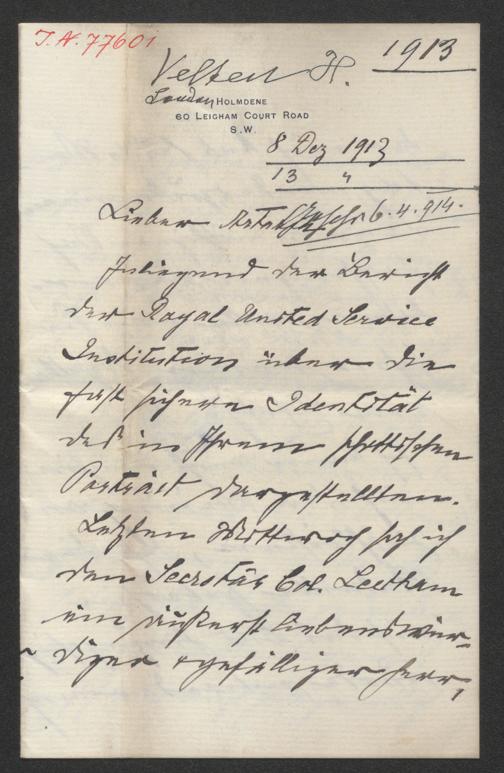 I.N. 77601
1913
Velten H.
London HOLMDENE
60 LEIGHAM COURT ROAD
S.W.
8 Dez 1913
13 "
6.4.914.
Lieber
Inliegend der Bericht
der Royal United Service
Institution über die
fast sichere Identität
des in Ihrem schottischen
Porträt dargestellten.
Letzten Mittwoch sah ich
den Secretär Col. Leetham
ein äußerst liebenswür-
diger & gefälliger Herr,